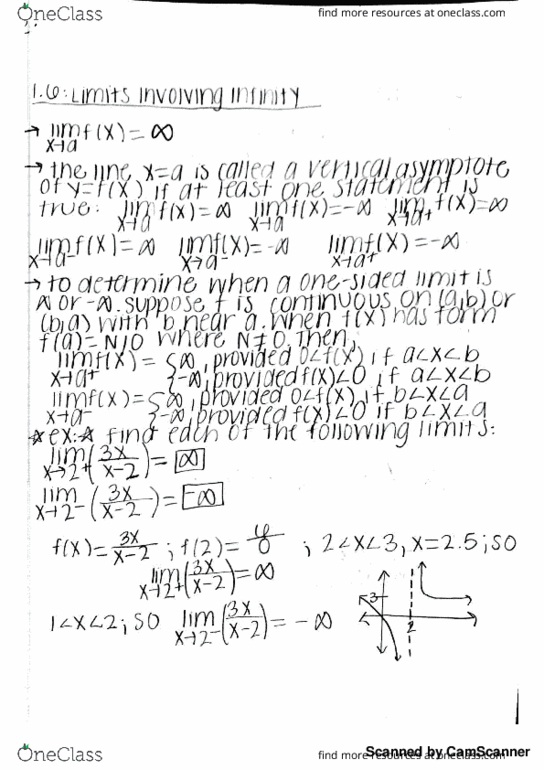 OneClass
find more resources at oneclass.com
1.6: Limits Involving Infinity
→ lim x→a f(x) = ∞
→ the line x=a is called a vertical asymptote
of y=f(x) if at least one statement is
true: lim x→a f(x) = ∞ lim x→a f(x) = -∞ lim x→a+ f(x) = ∞
lim x→a- f(x) = ∞ lim x→a- f(x) = -∞ lim x→a+ f(x) = -∞
→ to determine when a one-sided limit is
∞ or -∞. suppose f is continuous on (a,b) or
(b,a) with b near a. when f(x) has form
f(a) = N/0 where N≠0. Then,
lim x→a+ f(x) = { ∞, provided 0<f(x) if a<x<b
{ -∞, provided f(x)<0 if a<x<b
lim x→a- f(x) = { ∞, provided 0<f(x) if b<x<a
{ -∞, provided f(x)<0 if b<x<a
* ex: * find each of the following limits:
lim x→2+ (3x/x-2) = ∞
lim x→2- (3x/x-2) = -∞
f(x) = 3x/x-2 ; f(2) = 6/0 ; 2<x<3, x=2.5; so
lim x→2+ (3x/x-2) = ∞
1<x<2; so lim x→2- (3x/x-2) = -∞
3
2
OneClass
find more resources at oneclass.com
Scanned by CamScanner